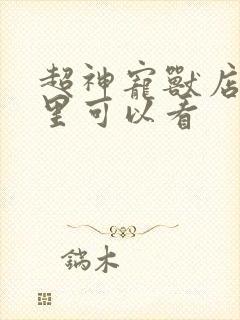 超神寵獸店
里可以看
鍋木